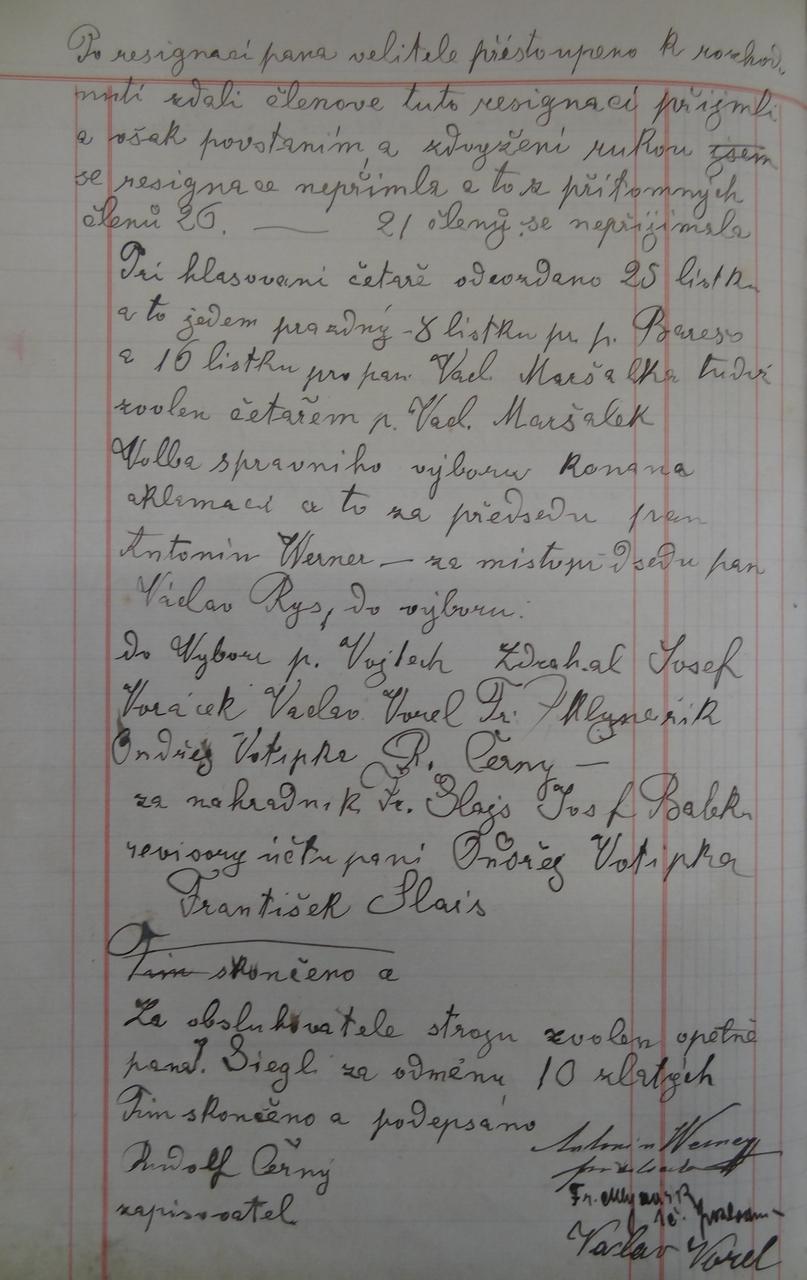 Po resignaci pana velitele přéstoupeno k rozhod-
nutí zdali členove tuto resignaci přijmli
a však povstaním a zdvyžení rukou jsem
se resignace nepřimla a to z přítomných
členů 26. — 21 členy se nepřijimala
Pri hlasovani četaře odevzdano 25 listku
a to jedem prazdný - 8 listku pr. p. Bareso
a 16 listku pro pan. Vacl. Maršalka tudiž
zvolen četařem p. Vacl. Maršalek
Volba spravniho výboru konana
aklamací a to za předsedu pan
Antonín Werner — za mistopřdsedu pan
Václav Rys, do výboru:
do Vyboru p. Vojtech Zdrahal Josef
Vorácek Vaclav Vorel Fr. Mlynařik
Ondřeg Votipka R. Černy —
za nahradnik Fr. Slajs Josef Babka
revisory účtu pani Ondřeg Votipka
František Slais
Tim skončeno a
Za obsluhovatele strogu zvolen opětně
pan J. Siegl za odměnu 10 zlatých
Tim skončeno a podepsáno
Rudolf Černý
zapisovatel
Antonin Werner
předseda
Fr. Mlynařik
Vaclav Vorel